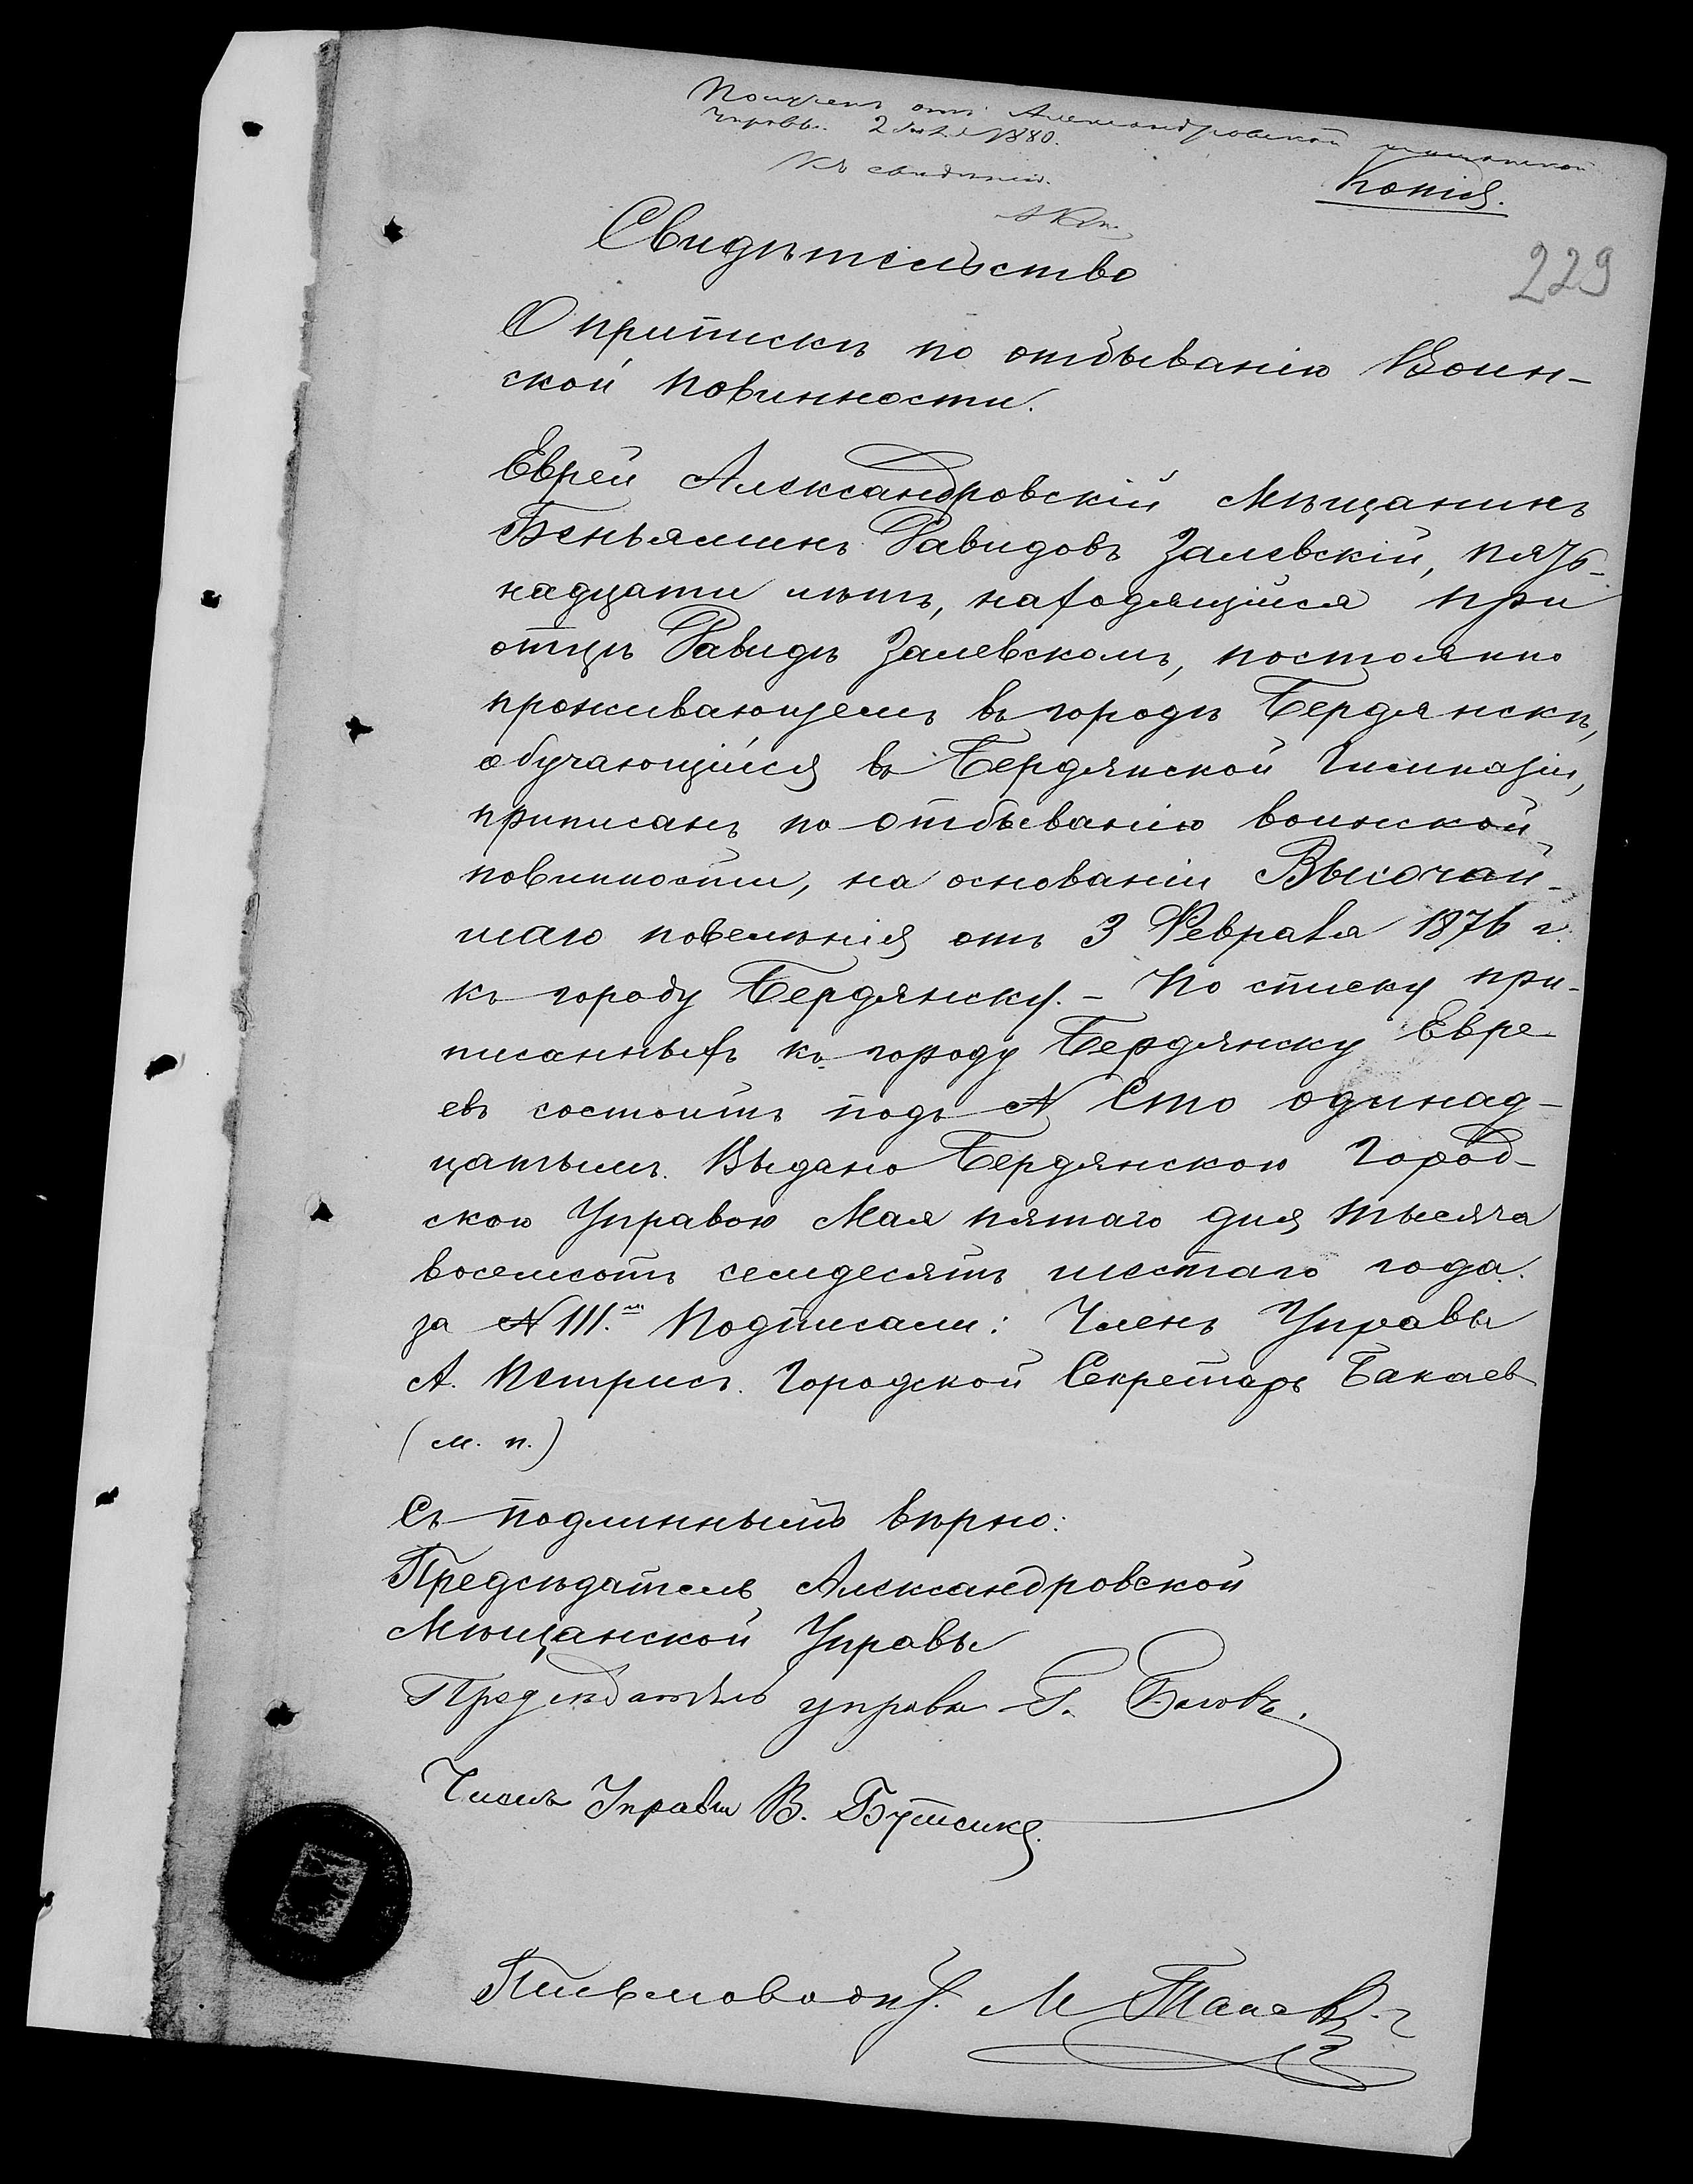 Получено отъ Александровской мѣщанской
управы. 2 1880.
Къ свѣдѣнію.
Копія.
229
Свидѣтельство
О припискѣ по отбыванію Воин-
ской повинности.
Еврей Александровскій Мѣщанинъ
Беньяминъ Давидовъ Залевскій, пят-
надцати лѣтъ, находящійся при
отцѣ Давидѣ Залевскомъ, постоянно
проживающемъ въ городѣ Бердянскѣ,
обучающійся въ Бердянской Гимназіи,
приписанъ по отбыванію воинской
повинности, на основаніи Высочай-
шаго повелѣнія отъ 3 Февраля 1876 г.
къ городу Бердянску. - По списку при-
писанныхъ къ городу Бердянску Евре-
евъ состоитъ подъ № Сто одинад-
цатымъ. Выдано Бердянскою Город-
скою Управою Мая пятаго дня тысяча
восемсотъ семдесятъ шестаго года.
за № 111.м Подписали: Членъ Управы
А. Петрисъ. Городской Секретарь Бакаев
(м. п.)
Съ подлиннымъ вѣрно:
Предсѣдатель Александровской
Мѣщанской Управы
Предсѣдатель управы Г. Бѣловъ.
Членъ Управы В.
Письмовод. М